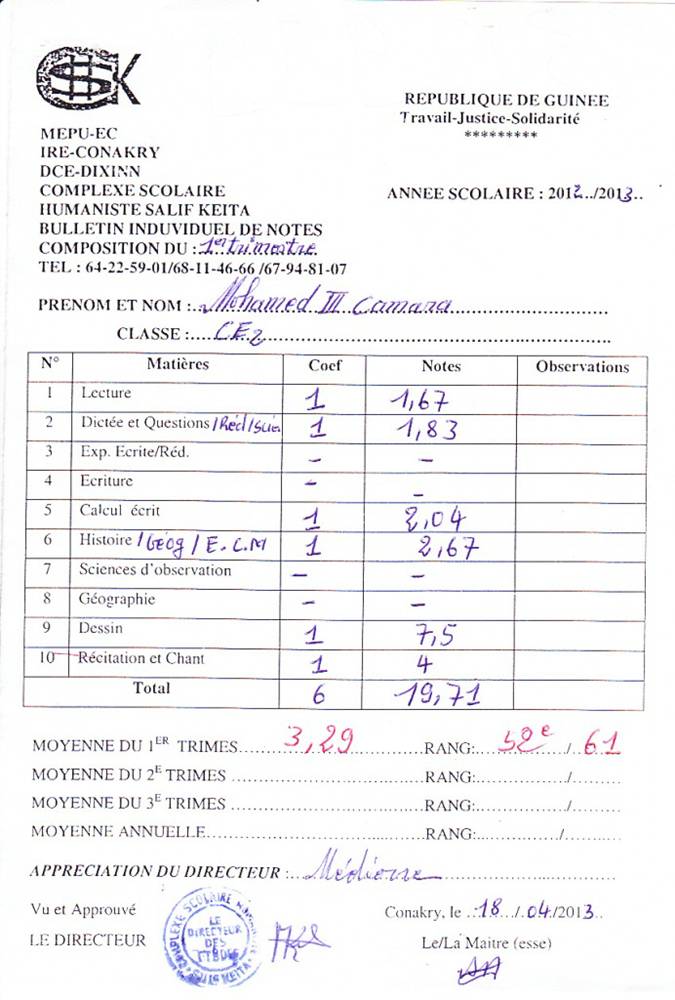 CHSK
REPUBLIQUE DE GUINEE
Travail-Justice-Solidarité
*********
MEPU-EC
IRE-CONAKRY
DCE-DIXINN
COMPLEXE SCOLAIRE
HUMANISTE SALIF KEITA
ANNEE SCOLAIRE : 2012../2013..
BULLETIN INDUVIDUEL DE NOTES
COMPOSITION DU : 1er trimestre
TEL : 64-22-59-01/68-11-46-66 /67-94-81-07
PRENOM ET NOM :..Mohamed III Camara
CLASSE :....CE2
N° Matières Coef Notes Observations
1 Lecture 1 1,67
2 Dictée et Questions /Réd/Scien 1 1,83
3 Exp. Ecrite/Réd. – –
4 Ecriture – –
5 Calcul écrit 1 2,04
6 Histoire /Géog / E.C.M 1 2,67
7 Sciences d'observation – –
8 Géographie – –
9 Dessin 1 7,5
10 Récitation et Chant 1 4
Total 6 19,71
MOYENNE DU 1ER TRIMES......3,29......RANG:....52e../..61
MOYENNE DU 2E TRIMES ......RANG:....../......
MOYENNE DU 3E TRIMES ......RANG:....../......
MOYENNE ANNUELLE......RANG:....../......
APPRECIATION DU DIRECTEUR :..Médiocre
Vu et Approuvé
Conakry, le ..18../..04../2013..
LE DIRECTEUR
Le/La Maitre (esse)
COMPLEXE SCOLAIRE
LE
DIRECTEUR
DES
ETUDES
SALIF KEITA